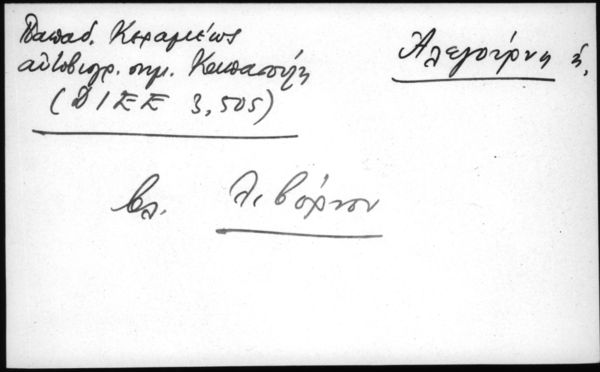 Παπαδ. Κεραμέως
αὐτοβιογρ. σημ.
(ΔΙΕΕ 3,505)
Ἀλεγούρνη ἡ.
βλ. Λιβόρνον